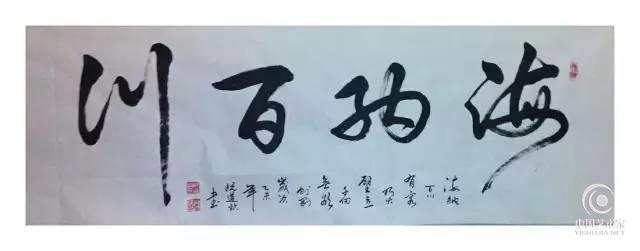 海纳百川
海纳
百川
有容
乃大
壁立
千仞
无欲
则刚
岁次
乙未
年
书
中国艺术家
YISHUJIA.NET